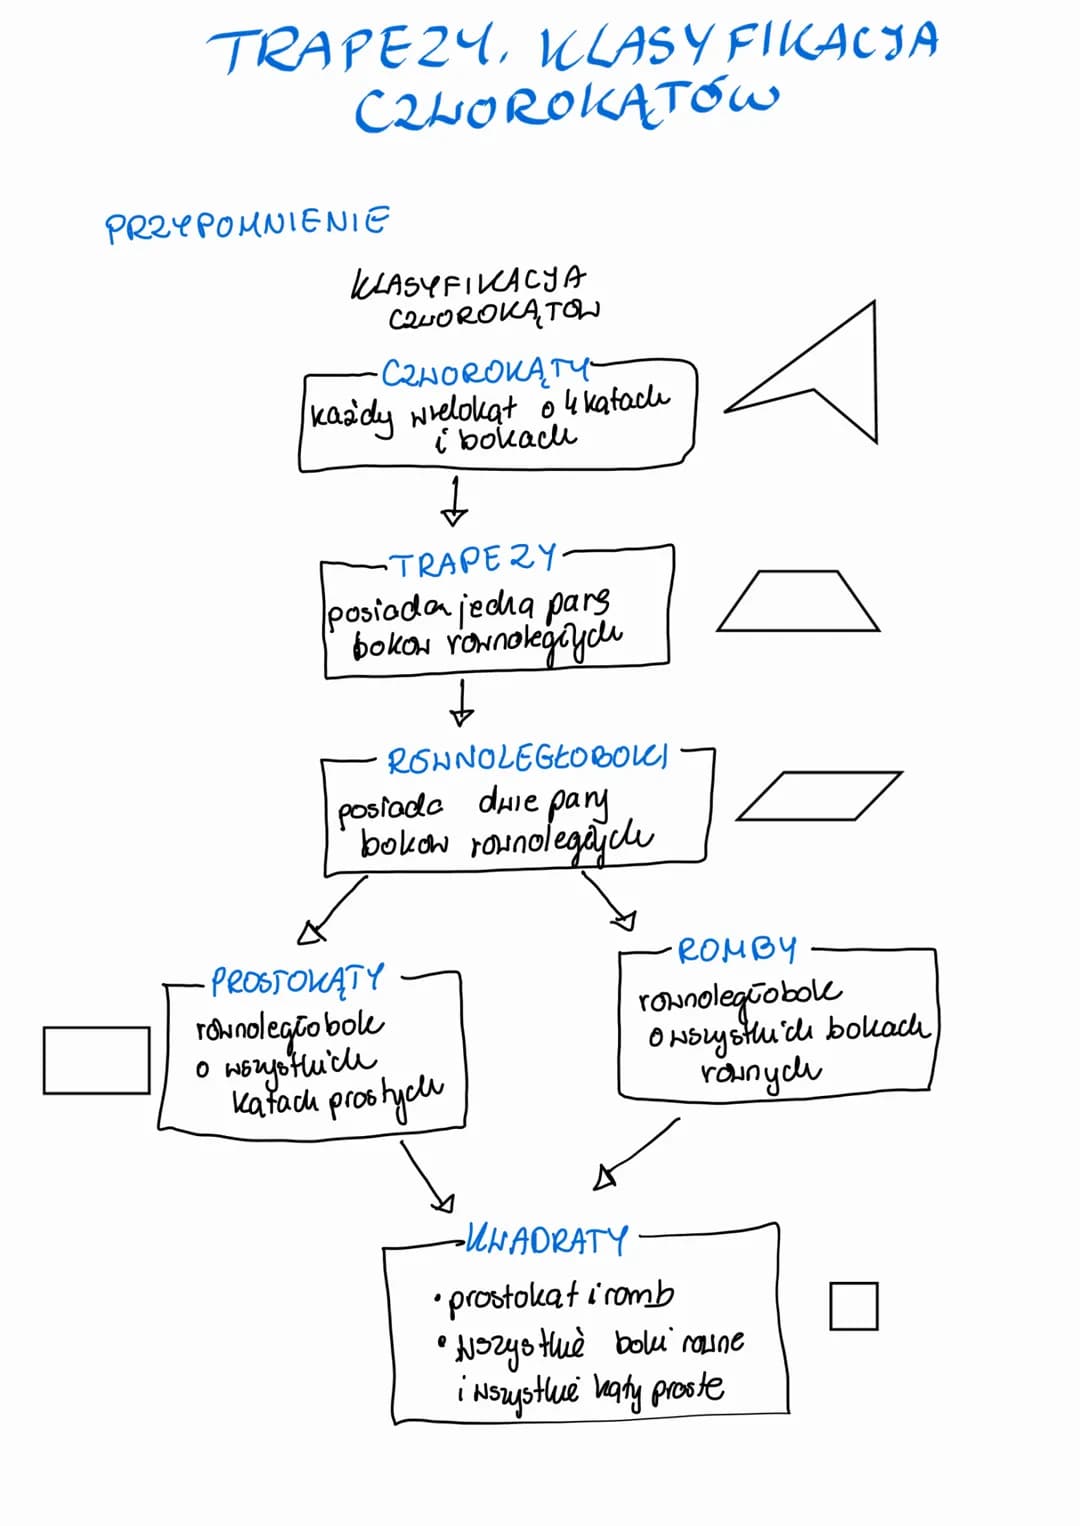 TRAPEZY. KLASYFIKACJA
CZWOROKĄTÓW
PRZYPOMNIENIE
KLASYFIKACJA
CZWOROKĄTÓW
CZWOROKĄTY
każdy wielokąt o 4 kątach
i bokach
TRAPEZY
posiada jedną parę
boków równoległych
RÓWNOLEGŁOBOKI
posiada dwie pary
boków równoległych
PROSTOKĄTY
równoległobok
o wszystkich
kątach prostych
ROMBY
równoległobok
o wszystkich bokach
równych
KWADRATY
• prostokąt i romb
• wszystkie boki równe
i wszystkie kąty proste